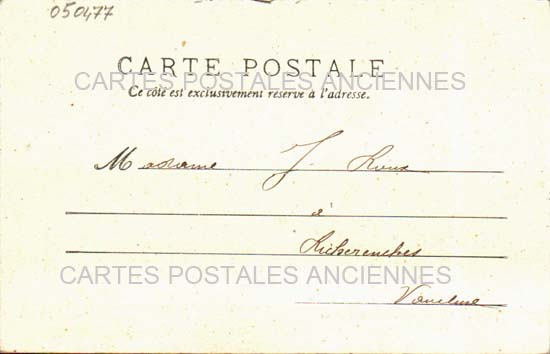 050477
CARTE POSTALE
CARTES POSTALES ANCIENNES
Ce côté est exclusivement réservé à l'adresse.
Madame J. Roux
à
Richerenches
CARTES POSTALES ANCIENNES
Vaucluse